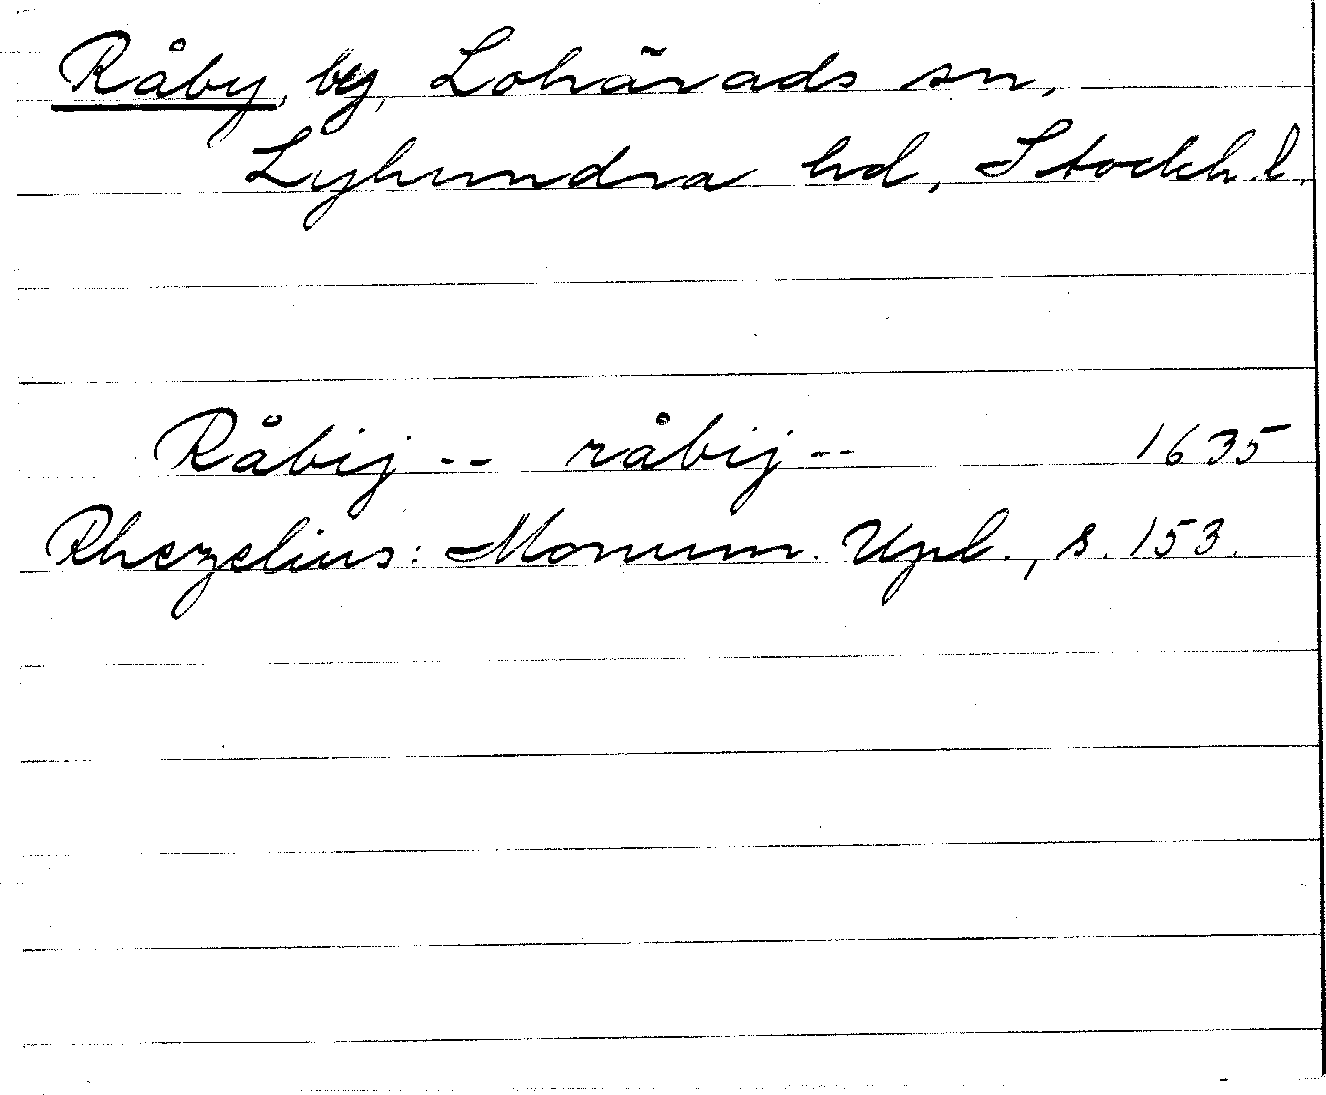 Råby, by, Lohärads sn,
Lyhundra hd, Stockh. l.
Råbij -- råbij -- 1635
Rhezelius: Monum. Upl., s. 153.